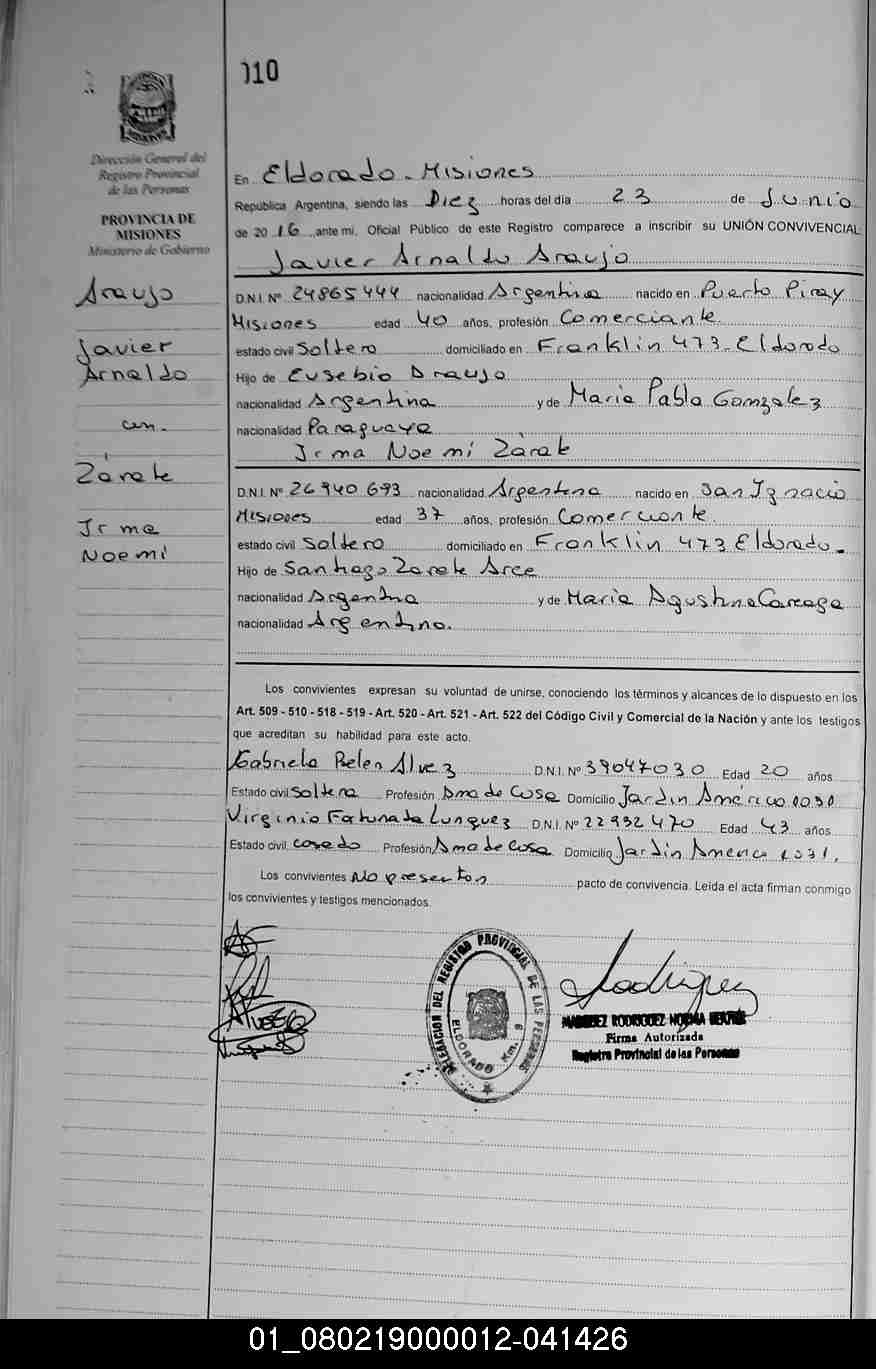 110
Dirección General del
Registro Provincial
de las Personas
PROVINCIA DE
MISIONES
Ministerio de Gobierno
Araujo
Javier
Arnaldo
con.
Zárate
Irma
Noemí
En Eldorado - Misiones
República Argentina, siendo las Diez horas del día 23 de Junio
de 2016, ante mi, Oficial Público de este Registro comparece a inscribir su UNIÓN CONVIVENCIAL
Javier Arnaldo Araujo
D.N.I. Nº 24865444 nacionalidad Argentina nacido en Puerto Piray
Misiones edad 40 años, profesión Comerciante
estado civil Soltero domiciliado en Franklin 473 - Eldorado
Hijo de Eusebio Araujo
nacionalidad Argentina y de Maria Pabla Gomzalez
nacionalidad Paraguaya
Irma Noemí Zárate
D.N.I. Nº 26940693 nacionalidad Argentina nacido en San Ignacio
Misiones edad 37 años, profesión Comerciante.
estado civil Soltera domiciliado en Franklin 473 Eldorado.
Hijo de Santiago Zarate Arce
nacionalidad Argentina y de Maria Agustina Careaga
nacionalidad Argentina.
Los convivientes expresan su voluntad de unirse, conociendo los términos y alcances de lo dispuesto en los
Art. 509 - 510 - 518 - 519 - Art. 520 - Art. 521 - Art. 522 del Código Civil y Comercial de la Nación y ante los testigos
que acreditan su habilidad para este acto.
Gabriela Belen Alvez D.N.I. Nº 39047030 Edad 20 años
Estado civil Soltera Profesión Ama de Casa Domicilio Jardin América
Virginia Fortunata Lunquez D.N.I. Nº 22932470 Edad 43 años
Estado civil casada Profesión Ama de Casa Domicilio Jardin America
Los convivientes No presentan pacto de convivencia. Leída el acta firman conmigo
los convivientes y testigos mencionados.
DELEGACION DEL REGISTRO PROVINCIAL DE LAS PERSONAS
ELDORADO Km. 9
RODRIGUEZ NORMA BEATRIZ
Firma Autorizada
Registro Provincial de las Personas
01_080219000012-041426